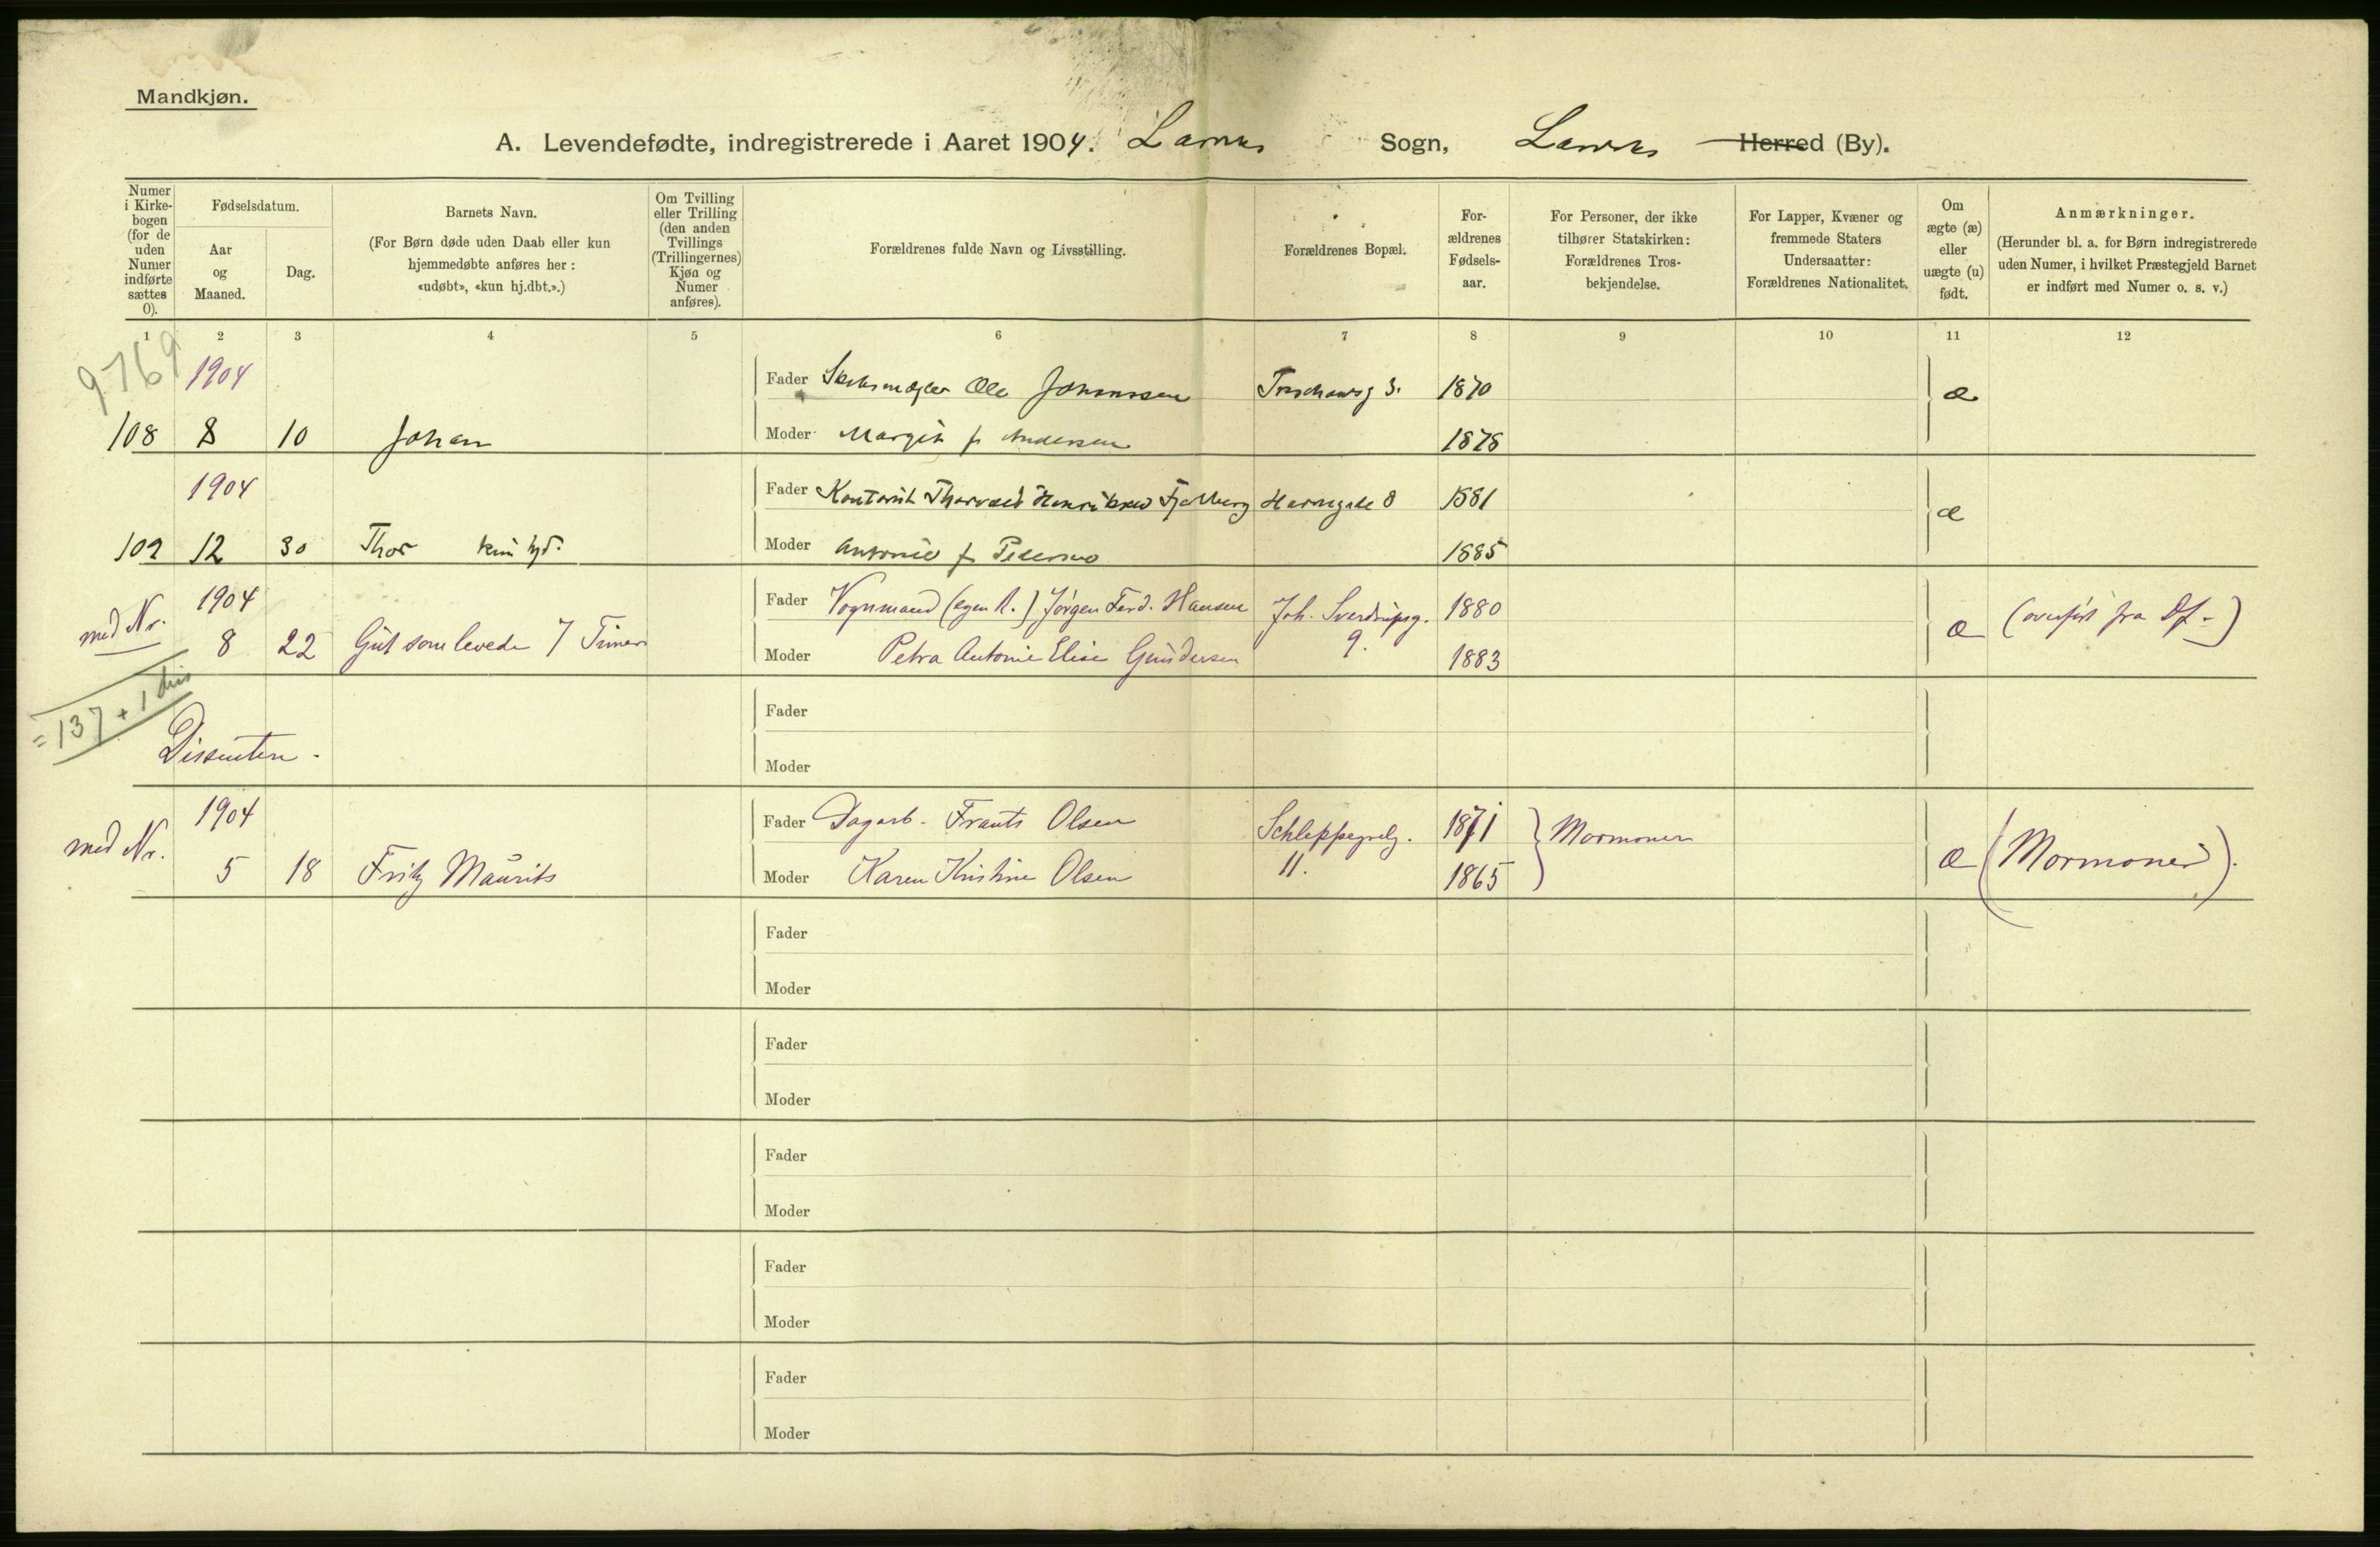 Mandkjøn.
A. Levendefødte, indregistrerede i Aaret 1904. Sogn, Herred (By).
Numer i Kirkebogen (for de uden Numer indførte sættes 0).
Fødselsdatum.
Aar og Maaned.
Dag.
Barnets Navn.
(For Børn døde uden Daab eller kun hjemmedøbte anføres her: «udøbt», «kun hj.dbt.».)
Om Tvilling eller Trilling (den anden Tvillings (Trillingernes) Kjøn og Numer anføres).
Forældrenes fulde Navn og Livsstilling.
Forældrenes Bopæl.
Forældrenes Fødselsaar.
For Personer, der ikke tilhører Statskirken: Forældrenes Trosbekjendelse.
For Lapper, Kvæner og fremmede Staters Undersaatter: Forældrenes Nationalitet.
Om ægte (æ) eller uægte (u) født.
Anmærkninger.
(Herunder bl. a. for Børn indregistrerede uden Numer, i hvilket Præstegjeld Barnet er indført med Numer o. s. v.)
1 2 3 4 5 6 7 8 9 10 11 12
9769
1904 Fader Ole Johanssen 3. 1870 æ
108 8 10 Johan Moder Margit f. Andersen 1878
1904 Fader Kontorist Thorvald Henriksen Fjellberg Havnegade 8 1881 æ
109 12 30 Thor kun hjd. Moder Antonie f. Pedersen 1885
med Nr. 1904 Fader Vognmand (egen R.) Jørgen Ferd. Hansen Joh. Sverdrupsg. 9. 1880 æ (overført fra Df.)
8 22 Gut som levede 7 Timer Moder Petra Antonie Elise Gundersen 1883
= 137 + 1 dis
Fader
Dissentere.
Moder
med Nr. 1904 Fader Dagarb. Frants Olsen Schleppegrelg. 11. 1871 Mormoner æ (Mormoner).
5 18 Fritz Maurits Moder Karen Kristine Olsen 1865
Fader
Moder
Fader
Moder
Fader
Moder
Fader
Moder
Fader
Moder